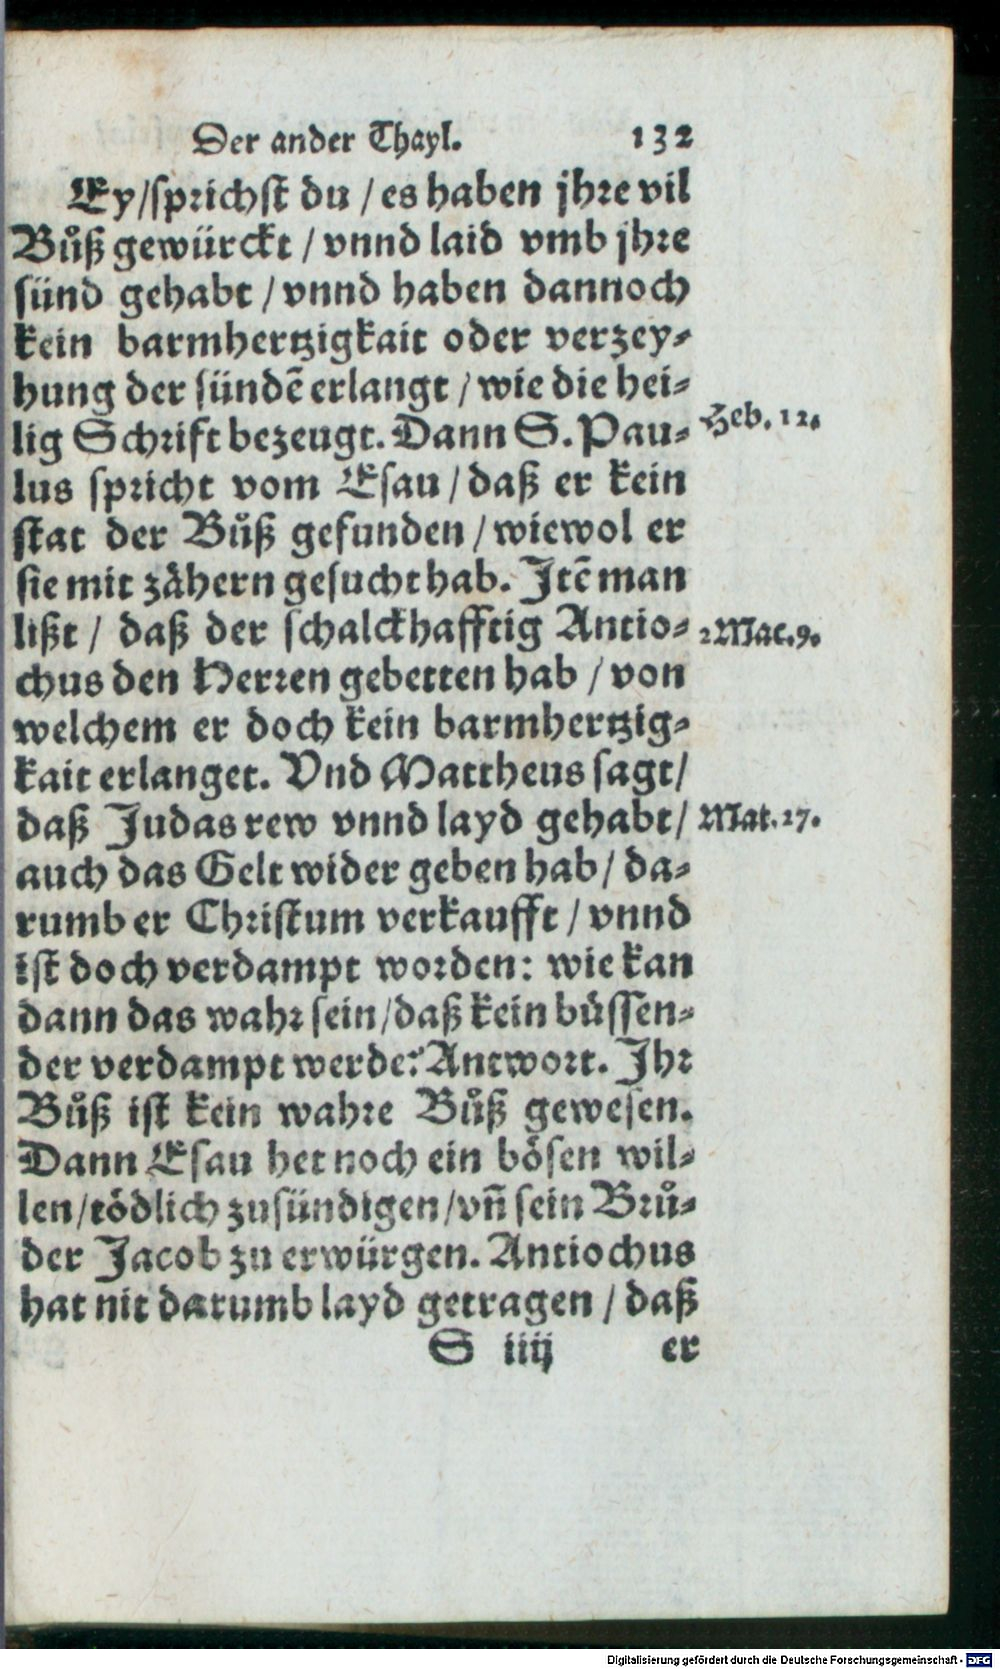 Der ander Thayl. 132
Ey/sprichst du / es haben jhre vil
Bůß gewürckt / vnnd laid vmb jhre
sünd gehabt / vnnd haben dannoch
kein barmhertzigkait oder verzey-
hung der sündē erlangt / wie die hei-
lig Schrift bezeugt. Dann S. Pau-
Heb. 12.
lus spricht vom Esau / daß er kein
stat der Bůß gefunden / wiewol er
sie mit zähern gesucht hab. Itē man
lißt / daß der schalckhafftig Antio-
2 Mac. 9.
chus den Herren gebetten hab / von
welchem er doch kein barmhertzig-
kait erlanget. Vnd Mattheus sagt/
daß Judas rew vnnd layd gehabt/
Mat. 27.
auch das Gelt wider geben hab / da-
rumb er Christum verkaufft / vnnd
ist doch verdampt worden: wie kan
dann das wahr sein/daß kein büssen-
der verdampt werde? Antwort. Ihr
Bůß ist kein wahre Bůß gewesen.
Dann Esau het noch ein bösen wil-
len/tödlich zusündigen/vn̄ sein Brů-
der Jacob zu erwürgen. Antiochus
hat nit darumb layd getragen / daß
S iiij er
Digitalisierung gefördert durch die Deutsche Forschungsgemeinschaft - DFG